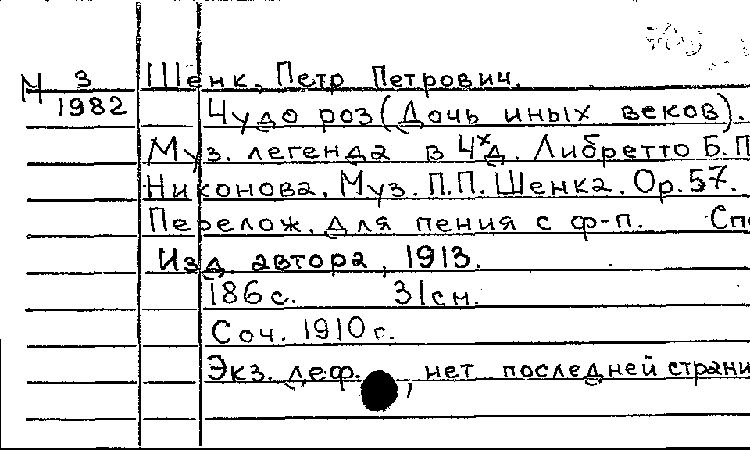 М 3/1982 Шенк, Петр Петрович.
Чудо роз (Дочь иных веков).
Муз. легенда в 4х д. Либретто Б. П
Никонова. Муз. П.П. Шенка. Op. 57.
Перелож. для пения с ф-п. Спб
Изд. автора, 1913.
186 с. 31 см.
Соч. 1910 г.
Экз. деф., нет последней страни